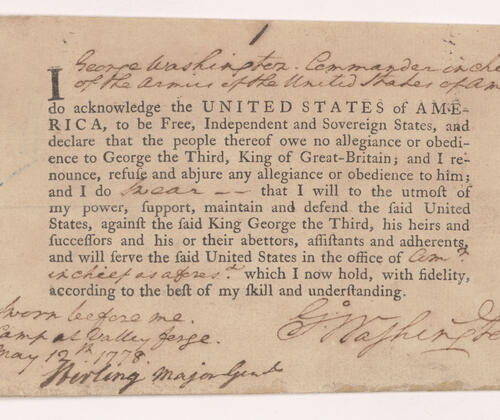 1
George Washington Commander in che
of the Armies of the United States of Am
I do acknowledge the UNITED STATES of AME-
RICA, to be Free, Independent and Sovereign States, and
declare that the people thereof owe no allegiance or obedi-
ence to George the Third, King of Great-Britain; and I re-
nounce, refuſe and abjure any allegiance or obedience to him;
and I do Swear —— that I will to the utmoſt of
my power, ſupport, maintain and defend the ſaid United
States, againſt the ſaid King George the Third, his heirs and
ſucceſſors and his or their abettors, aſſiſtants and adherents,
and will ſerve the ſaid United States in the office of Comr.
in chief as afores.d which I now hold, with fidelity,
according to the beſt of my ſkill and underſtanding.
Sworn before me
Camp at Valley forge
May 12th 1778
Go Washington
Stirling Major Genl